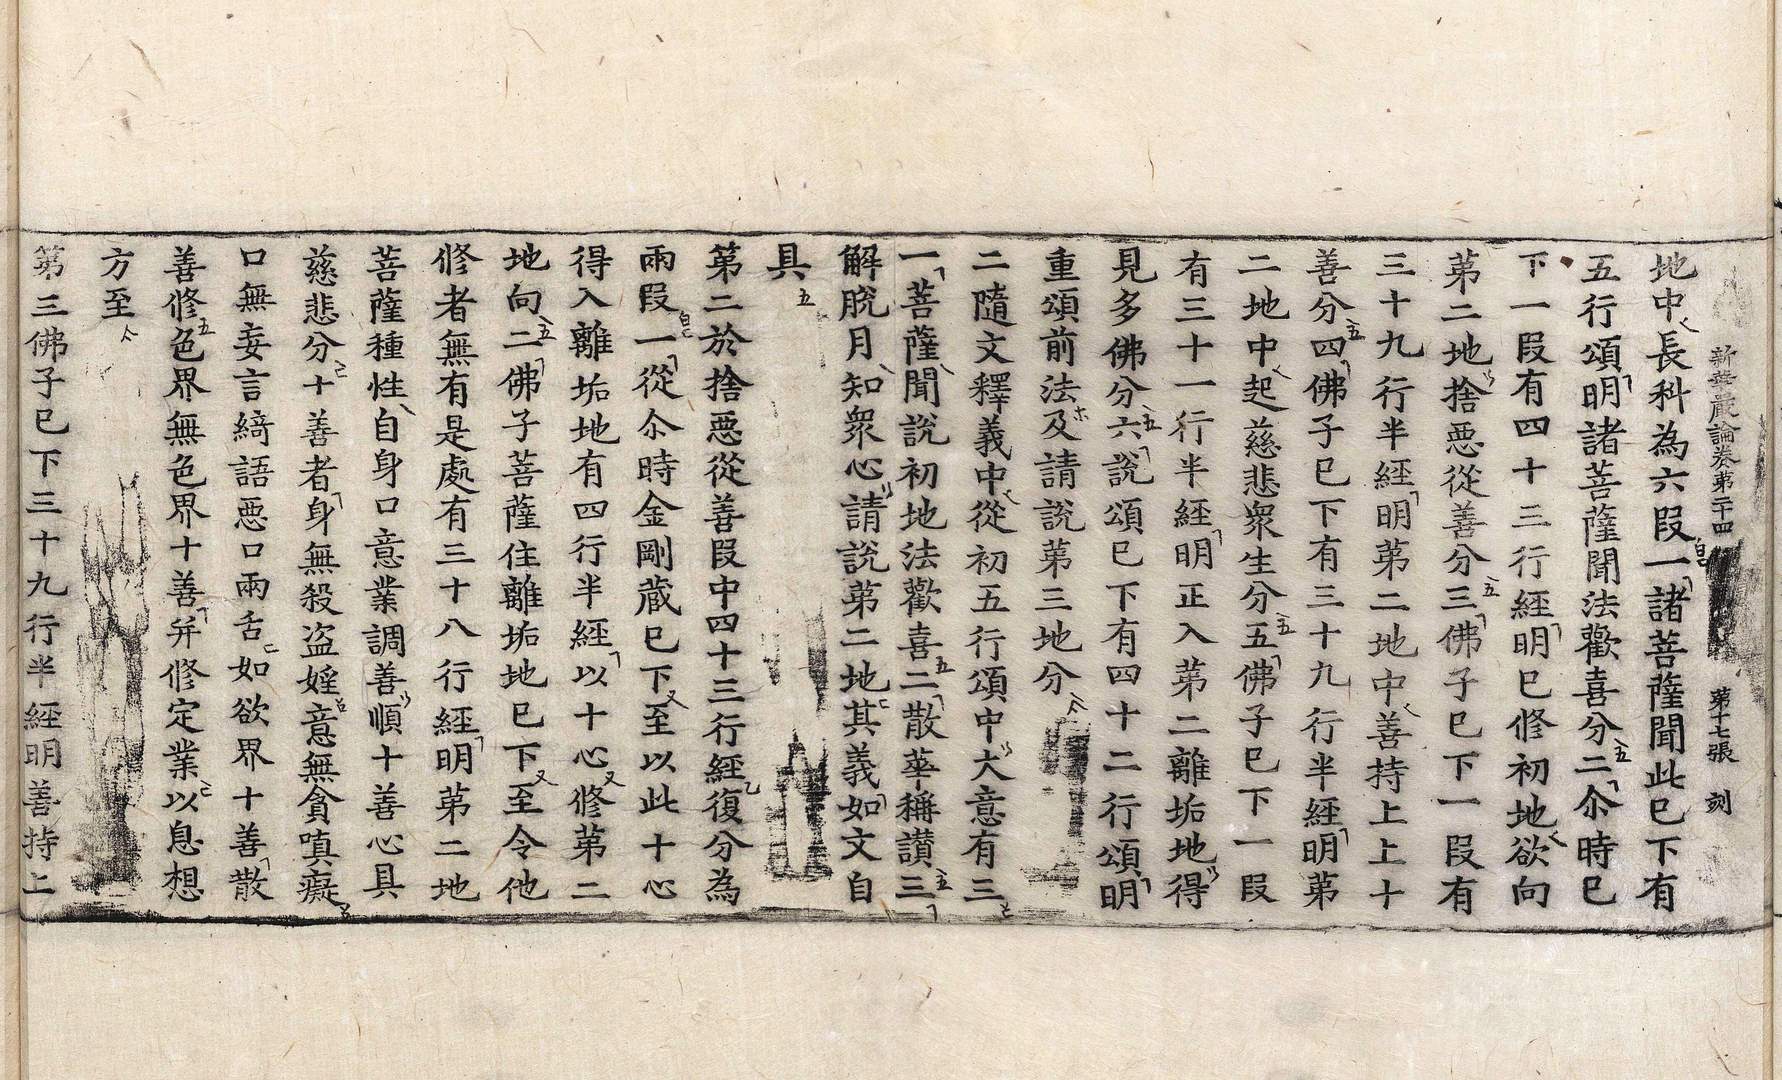 新華嚴論卷第二十四 第十七張 刻
地中長科為六段一諸菩薩聞此已下有
五行頌明諸菩薩聞法歡喜分二尒時已
下一段有四十三行經明已修初地欲向
第二地捨惡從善分三佛子已下一段有
三十九行半經明第二地中善持上上十
善分四佛子已下有三十九行半經明第
二地中起慈悲衆生分五佛子已下一段
有三十一行半經明正入第二離垢地得
見多佛分六說頌已下有四十二行頌明
重頌前法及請說第三地分
二隨文釋義中從初五行頌中大意有三
一菩薩聞說初地法歡喜二散華稱讃三
解脫月知衆心請說第二地其義如文自
具
第二於捨惡從善段中四十三行經復分為
兩段一從尒時金剛藏已下至以此十心
得入離垢地有四行半經以十心修第二
地向二佛子菩薩住離垢地已下至令他
修者無有是處有三十八行經明第二地
菩薩種性自身口意業調善順十善心具
慈悲分十善者身無殺盜婬意無貪嗔癡
口無妄言綺語惡口兩舌如欲界十善散
善修色界無色界十善并修定業以息想
方至
第三佛子已下三十九行半經明善持上